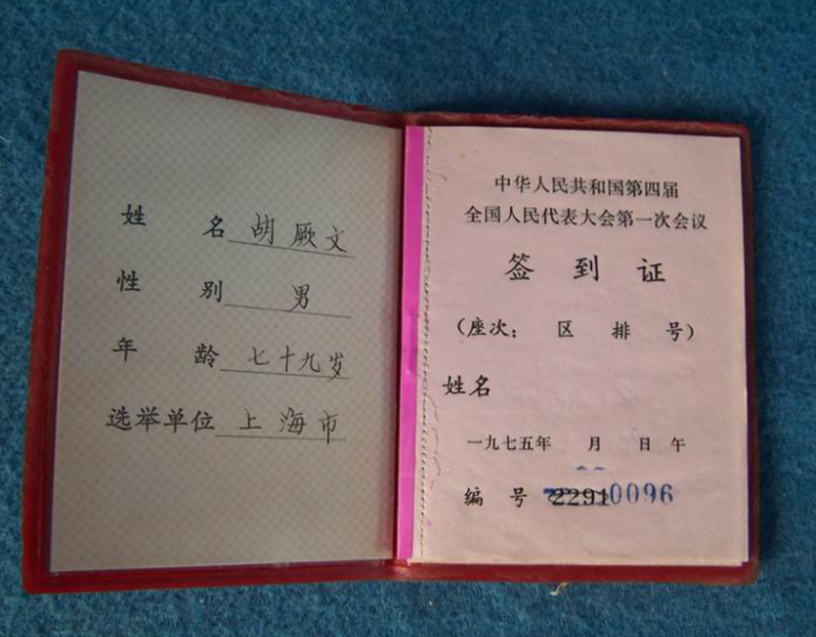 姓 名 胡厥文
性 别 男
年 龄 七十九岁
选举单位 上海市
中华人民共和国第四届
全国人民代表大会第一次会议
签 到 证
（座次： 区 排 号）
姓名
一九七五年 月 日 午
编 号 2291 0096